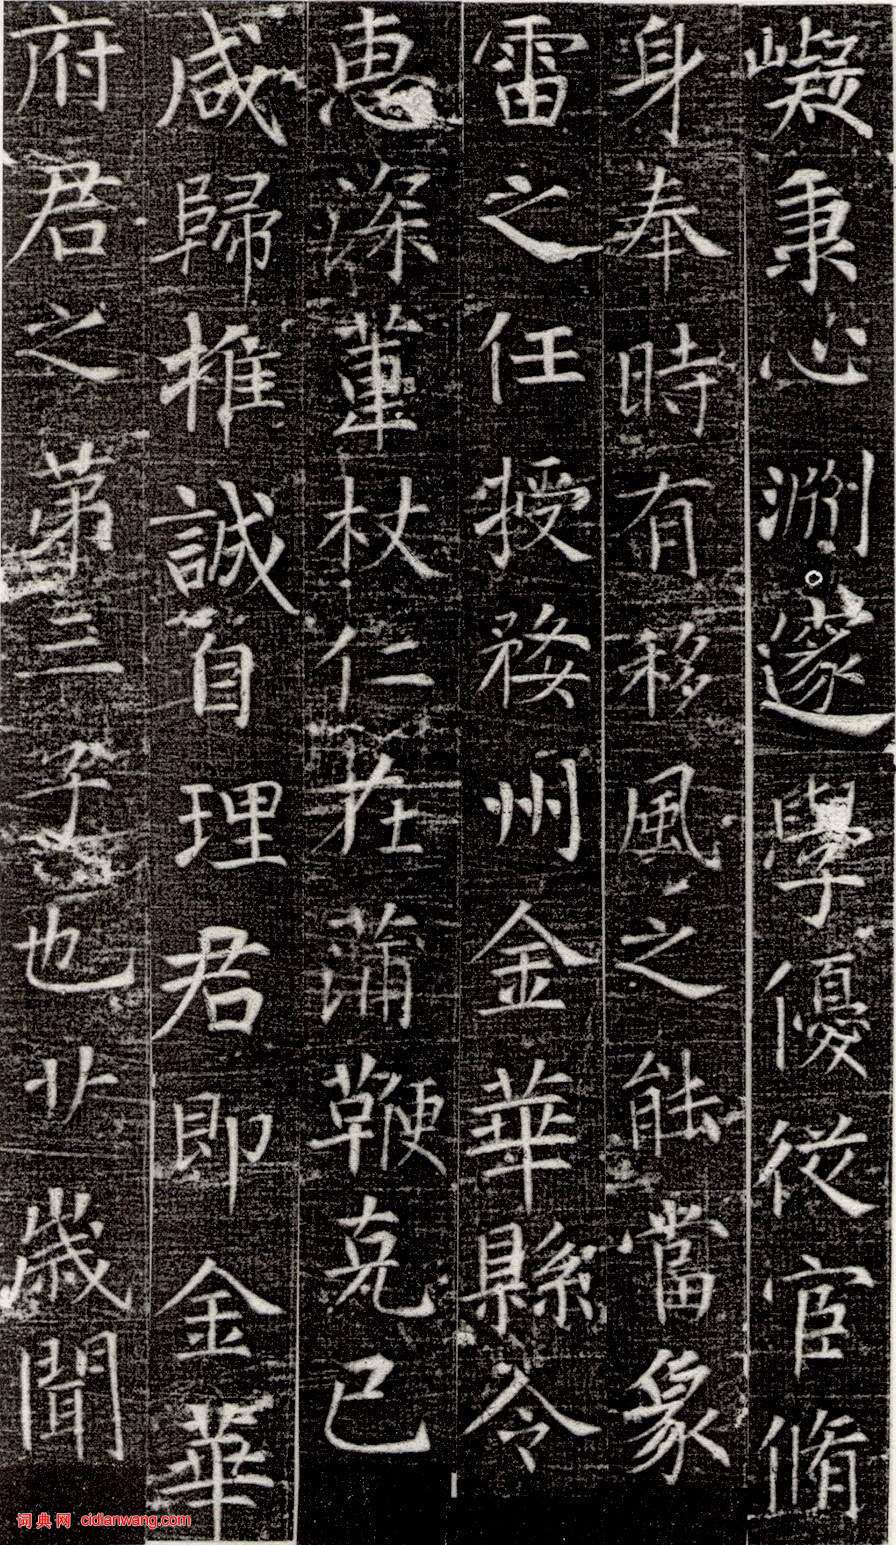 嶷秉心淵邃學優從宦脩
身奉時有移風之能當象
雷之任授婺州金華縣令
惠深葷杖仁在蒲鞭克己
咸歸推誠自理君即金華
府君之第三子也廿歲聞
词典网 cidianwang.com